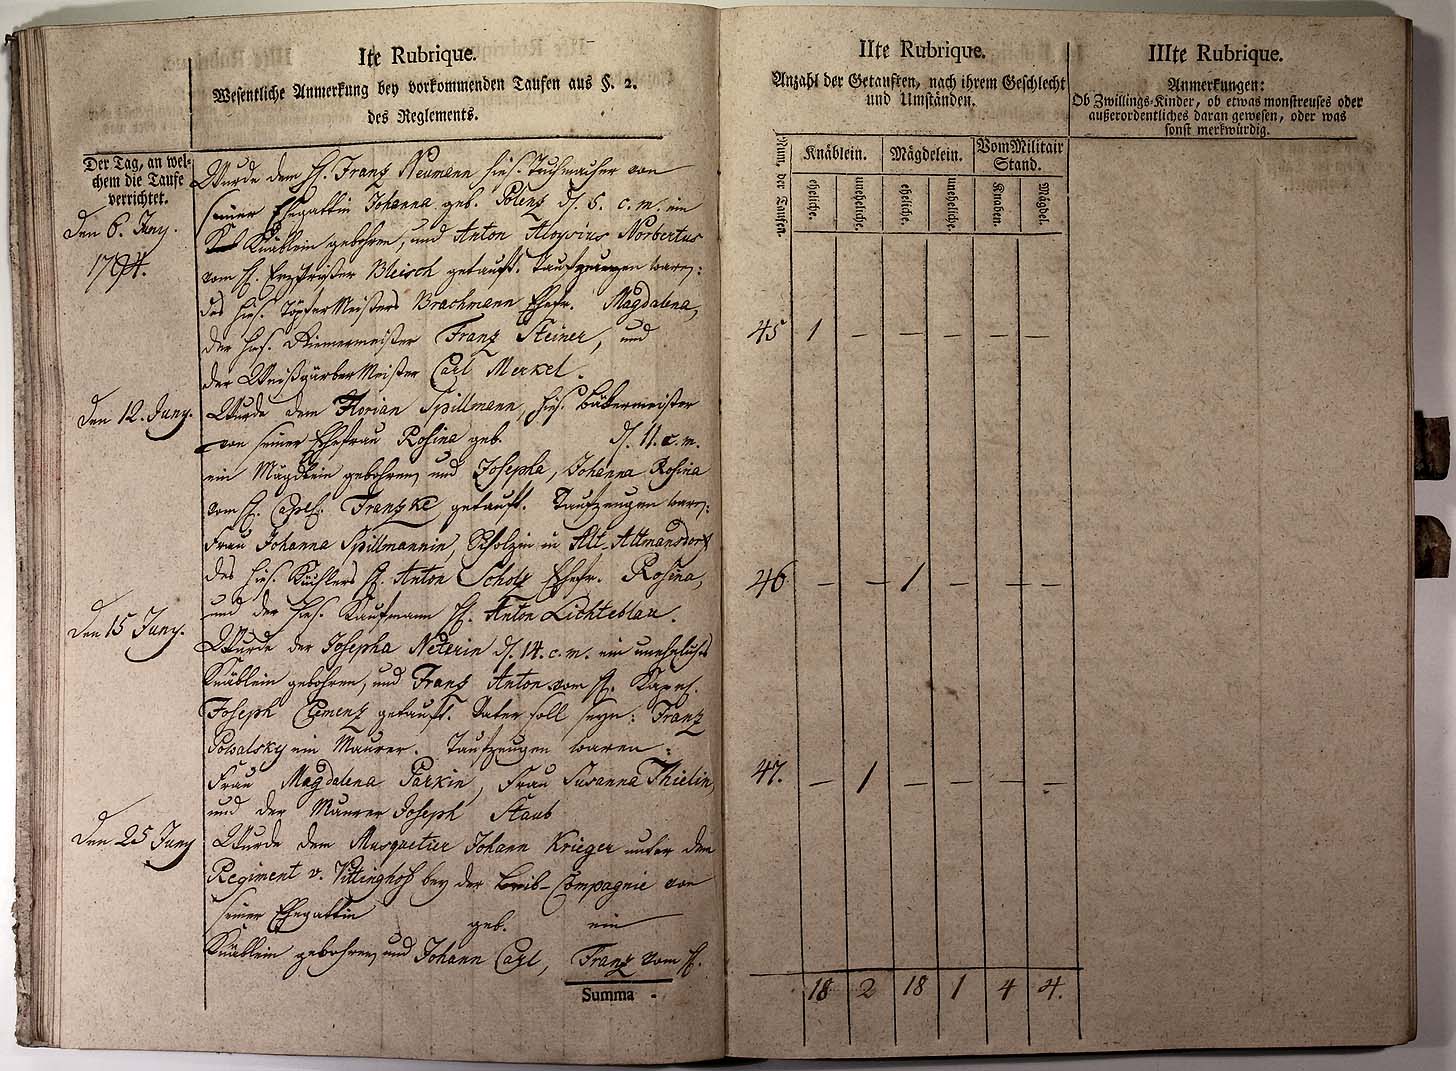 Ite Rubrique.
Wesentliche Anmerkung bey vorkommenden Taufen aus §. 2.
des Reglements.
Der Tag, an wel-
chem die Taufe
verrichtet.
Den 6. Juny.
1794.
Wurde dem H. Franz Neumann hies. Tuchmacher von
seiner Ehegattin Johanna geb. Polenz d. 6. c. m. ein
Knäblein gebohren, und Anton Aloysius Norbertus
vom H. Erzpriester Bleisch getauft. Taufzeugen waren:
des hies. Töpfer Meisters Brachmann Ehefr. Magdalena,
der hies. Riemermeister Franz Steiner, und
der Weißgärber Meister Carl Merkel.
Den 12. Juny.
Wurde dem Florian Spillmann, hies. Bäkermeister
von seiner Ehefrau Rosina geb. d. 11. c. m.
ein Mägdlein gebohren, und Josepha, Johanna Rosina
vom H. Capel. Franzke getauft. Taufzeugen waren:
Frau Johanna Spillmannin, Scholzin in Alt-Altmansdorf
des hies. H. Anton Scholz Ehefr. Rosina,
und der hies. Kaufmann H. Anton Lichteblau.
Den 15 Juny.
Wurde der Josepha Neterin d. 14. c. m. ein unehliches
Knäblein gebohren, und Franz Anton vom H.
Joseph Clemenz getauft. Vater soll seyn: Franz
Powalsky ein Maurer. Taufzeugen waren:
Frau Magdalena Parkin, Frau Susanna Thielin,
und der Maurer Joseph Staub
Den 25 Juny
Wurde dem Musquetier Johann Krieger unter dem
Regiment v. Vittinghof bey der Leib-Compagnie von
seiner Ehegattin geb. ein
Knäblein gebohren, und Johann Carl, Franz vom H.
Summa -
IIte Rubrique.
Anzahl der Getauften, nach ihrem Geschlecht
und Umständen.
Num. der Taufen.
Knäblein.
Mägdelein.
Vom Militair
Stand.
eheliche.
uneheliche.
eheliche.
uneheliche.
Knaben.
Mägdel.
45 1 — — — — —
46 — — 1 — — —
47. — 1 — — — —
18 2 18 1 4 4.
IIIte Rubrique.
Anmerkungen:
Ob Zwillings-Kinder, ob etwas monstreuses oder
außerordentliches daran gewesen, oder was
sonst merkwürdig.